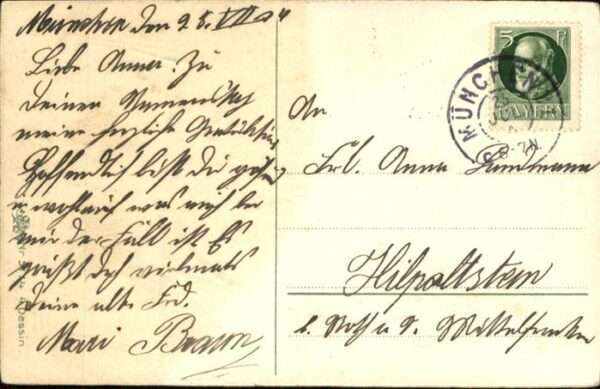 München den 25. VII 14
Liebe Anna. Zu
Deinem Namenstag
meine herzliche Gratulation
Hoffentlich bist Du gesund
u. wohlauf was auch bei
mir der Fall ist. Es
grüßt Dich vielmals
Deine alte Frd.
Mari Braun
5 Pf
BAYERN
MÜNCHEN
8-9 N
An
Frl. Anna
Hilpoltstein
b. Roth a. S. Mittelfranken
Dessin